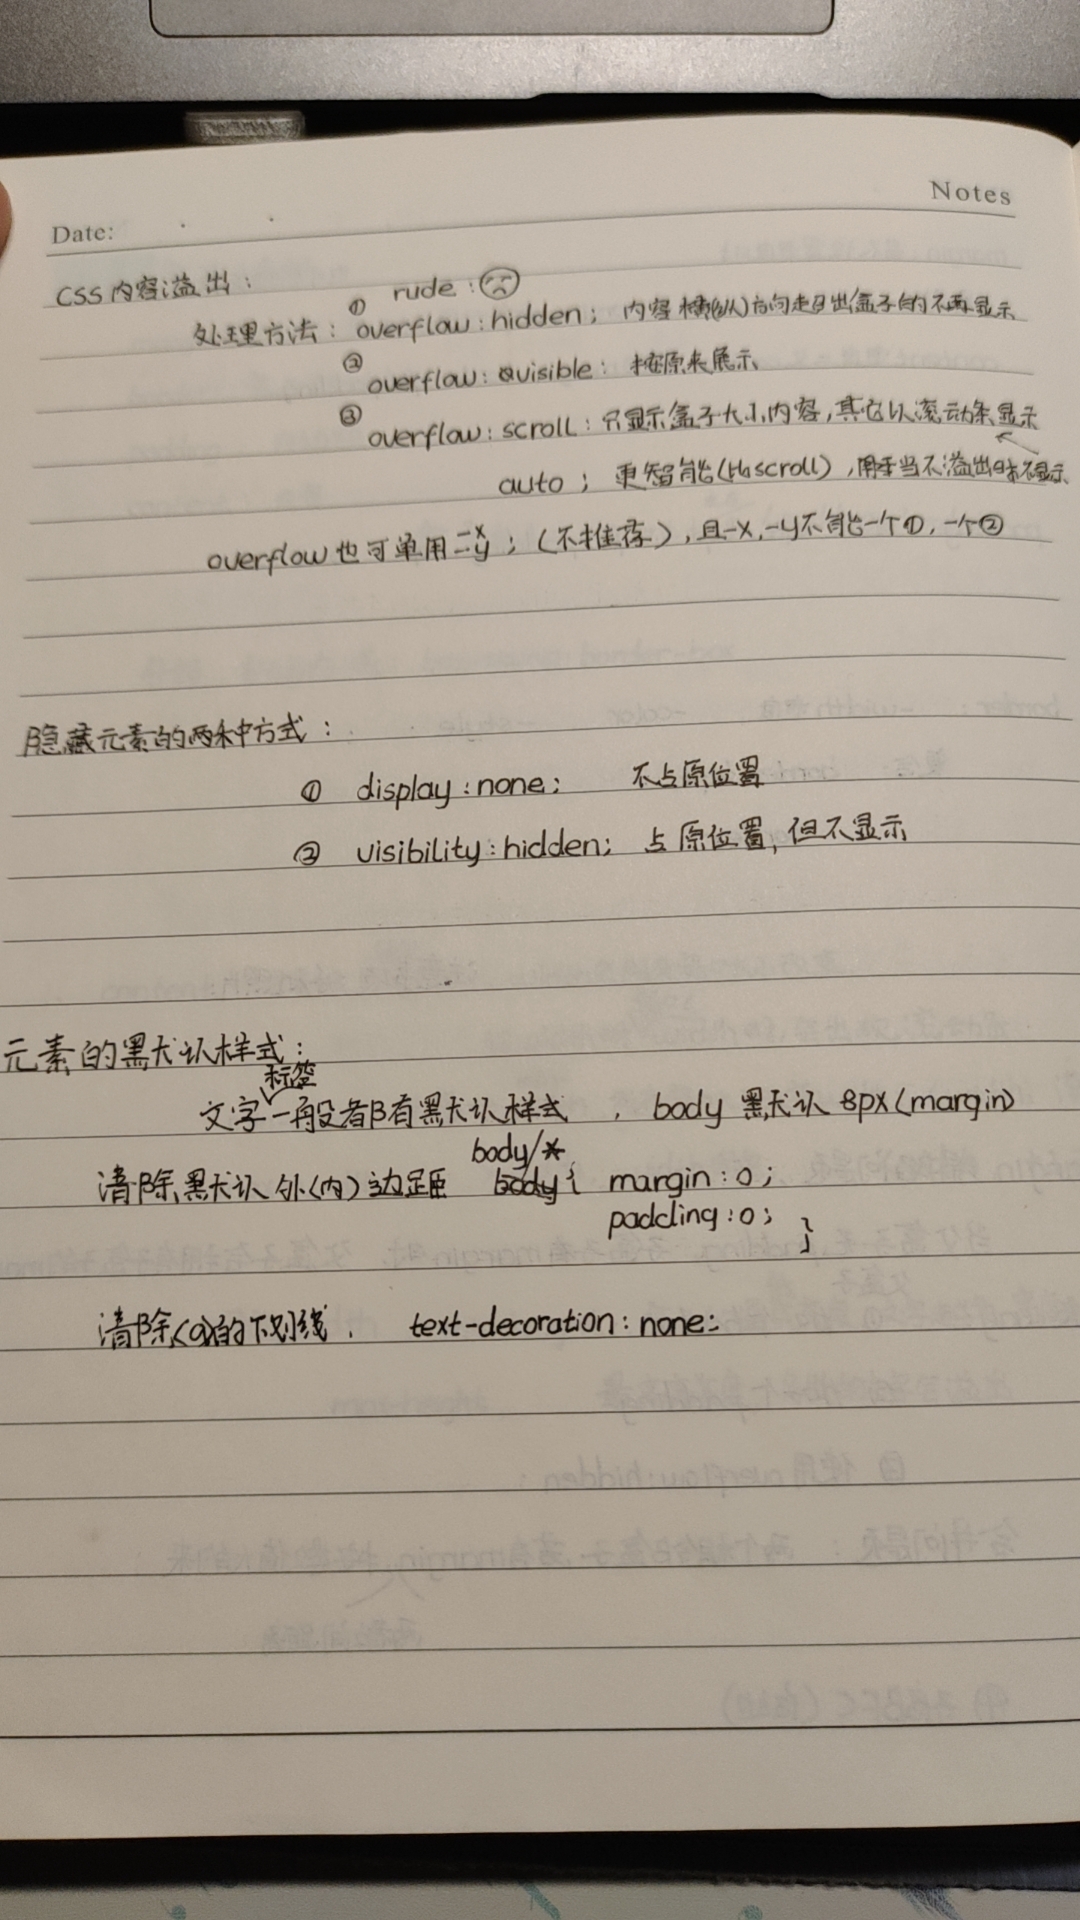 Notes
Date:
CSS内容溢出：
rude：
处理方法：① overflow：hidden； 内容横(纵)方向走出盒子的不再显示
② overflow：visible： 按原来展示
③ overflow：scroll：只显示盒子大小内容，其它以滚动条显示
auto； 更智能(比scroll)，用于当不溢出时不显示
overflow也可单用 -x -y；（不推荐），且-x，-y不能一个①，一个②
隐藏元素的两种方式：
① display：none； 不占原位置
② visibility：hidden； 占原位置，但不显示
元素的默认样式：
文字标签一般都有默认样式，body 默认 8px(margin)
清除默认外(内)边距 body/* { margin：0；
padding：0； }
清除<a>的下划线． text-decoration：none：